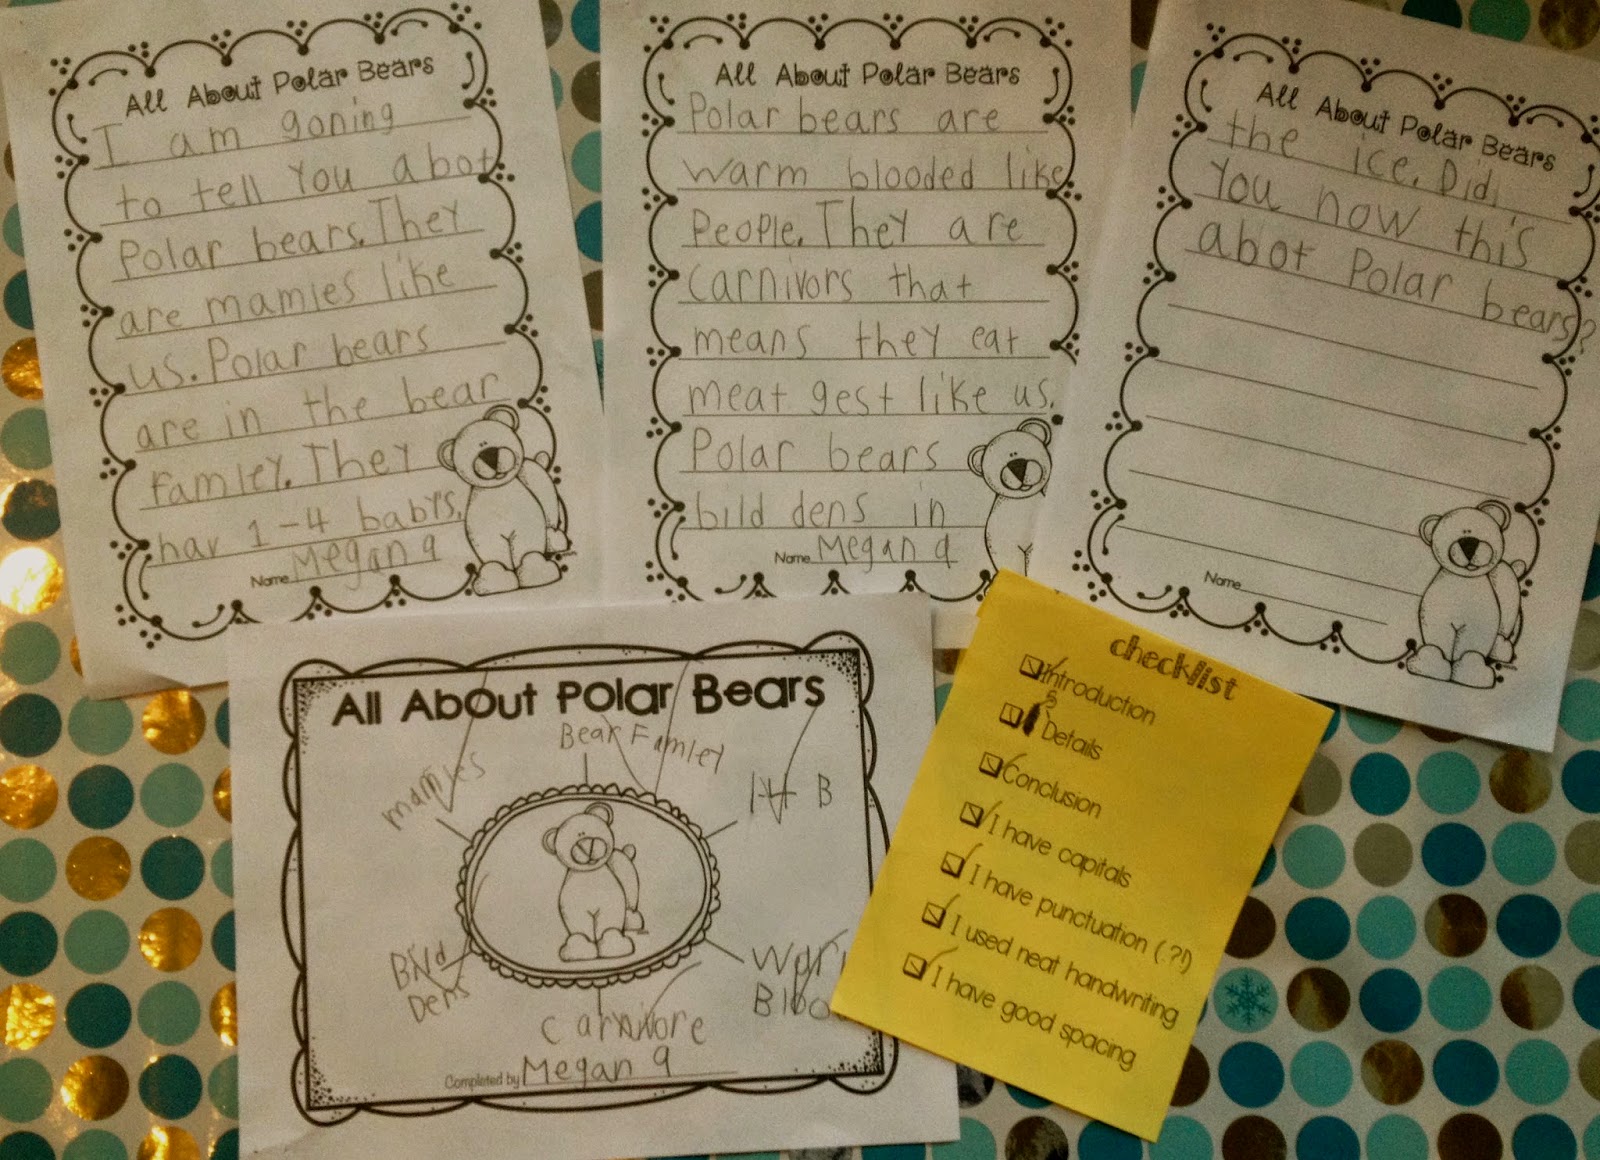 All About Polar Bears
I am goning
to tell You abot
Polar bears. They
are mamles like
us. Polar bears
are in the bear
Famley. They
hav 1-4 babys.
Name Megan 9
All About Polar Bears
Polar bears are
warm blooded like
People. They are
Carnivors that
means they eat
meat gest like us.
Polar bears
bild dens in
Name Megan 9
All About Polar Bears
the ice. Did
You now this
abot Polar bears?
Name
All About Polar Bears
mamles
Bear Famley
1-4 B
Bild
Dens
Carnivore
Completed by Megan 9
checklist
Introduction
5 Details
Conclusion
I have capitals
I have punctuation (.?!)
I used neat handwriting
I have good spacing